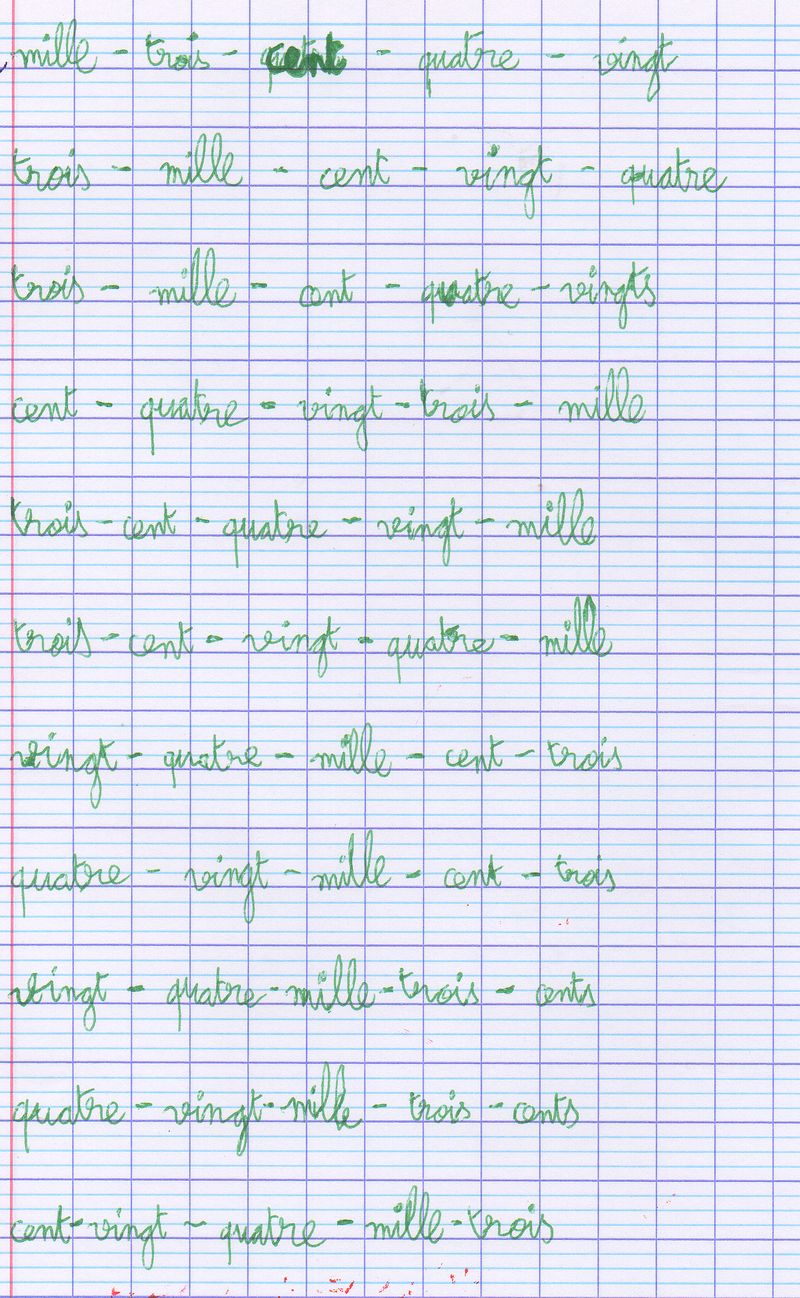 mille - trois - cent - quatre - vingt
trois - mille - cent - vingt - quatre
trois - mille - cent - quatre - vingts
cent - quatre - vingt - trois - mille
trois - cent - quatre - vingt - mille
trois - cent - vingt - quatre - mille
vingt - quatre - mille - cent - trois
quatre - vingt - mille - cent - trois
vingt - quatre - mille - trois - cents
quatre - vingt - mille - trois - cents
cent - vingt - quatre - mille - trois